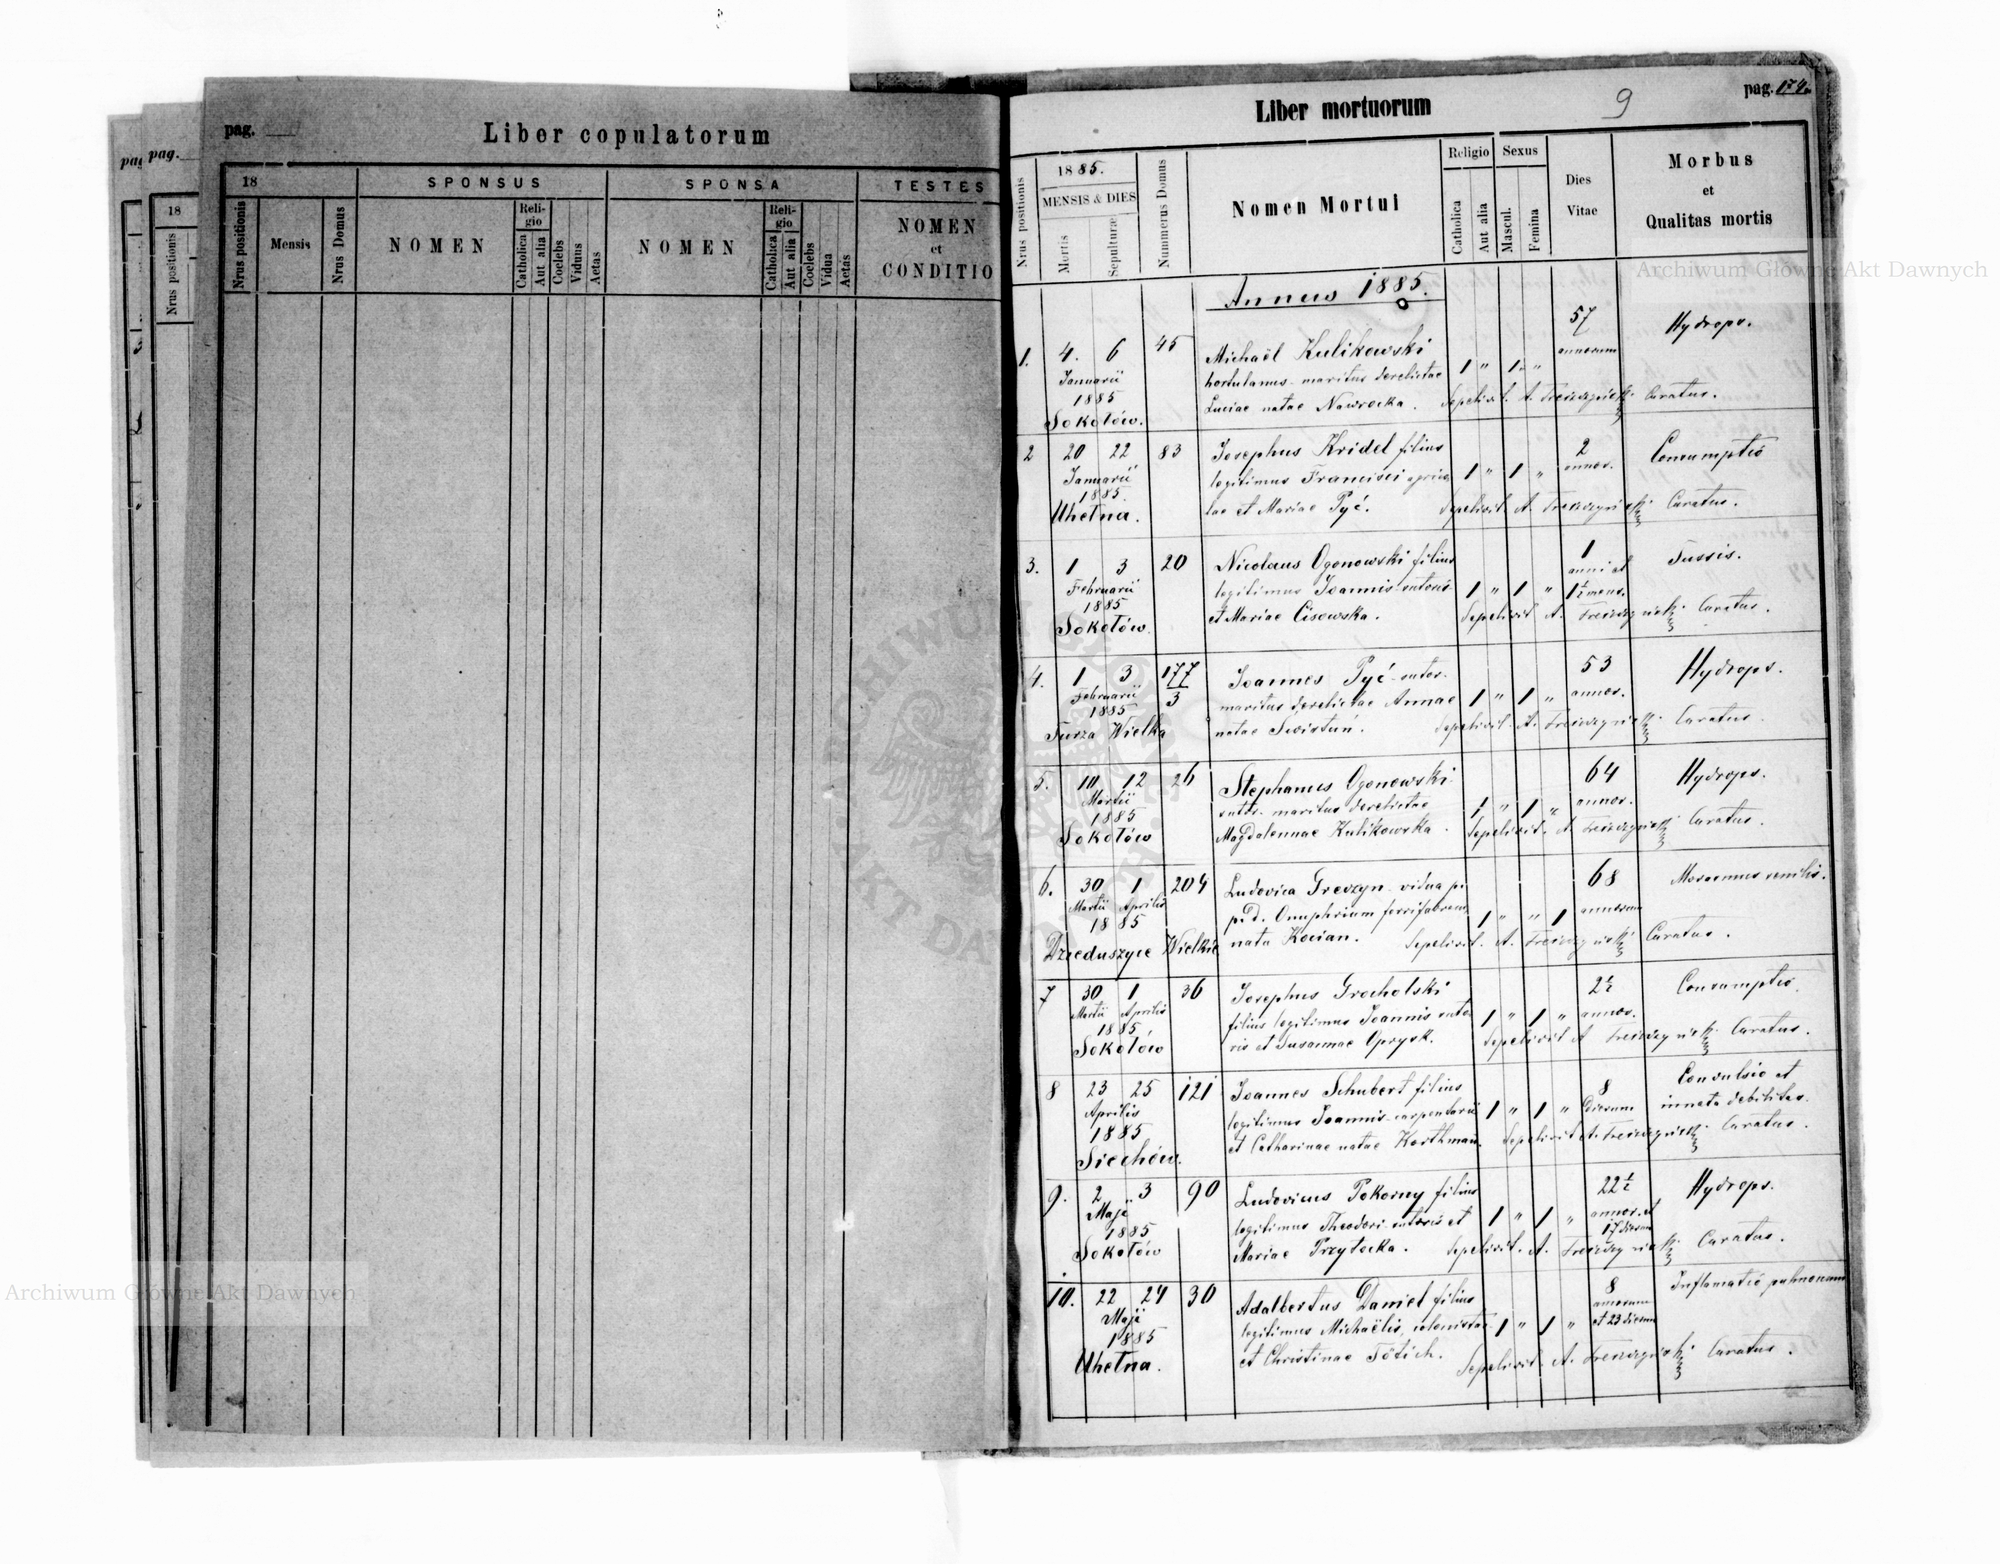 pag.
pag.
pag.
Liber copulatorum
18
18
SPONSUS
SPONSA
TESTES
Nrus positionis
Nrus positionis
Mensis
Nrus Domus
NOMEN
Religio
Catholica
Aut alia
Coelebs
Viduus
Aetas
NOMEN
Religio
Catholica
Aut alia
Coelebs
Vidua
Aetas
NOMEN
et
CONDITIO
Liber mortuorum
9
pag. 174.
Nrus positionis
1885.
MENSIS & DIES
Mortis
Sepulturæ
Nummerus Domus
Nomen Mortui
Religio
Catholica
Aut alia
Sexus
Mascul.
Femina
Dies
Vitae
Morbus
et
Qualitas mortis
Annus 1885.
1. 4. 6 45 Michaël Kulikowski 1 " 1 " 57 Hydrops.
Januarii hortulanus maritus derelictae annorum
1885 Luciae natae Nawrocka. Sepelivit A. Curatus.
Sokołów.
2 20 22 83 Josephus Kridel filius 1 " 1 " 2 Consumptio
Januarii legitimus Francisci annor.
1885. et Mariae Pyć. Sepelivit A. Curatus.
Uhełna.
3. 1 3 20 Nicolaus Ogonowski filius 1 " 1 " 1 Tussis.
Februarii legitimus Joannis sutoris anni et
1885 et Mariae Cisowska. 1½ mens.
Sokołów. Sepelivit A. Curatus.
4. 1 3 177/3 Joannes Pyć sutor 1 " 1 " 53 Hydrops.
Februarii maritus derelictae Annae annor.
1885 natae Swistuń. Sepelivit A. Curatus.
Turza Wielka
5. 10 12 26 Stephanus Ogonowski 1 " 1 " 64 Hydrops.
Martii sutor maritus derelictae annor.
1885 Magdalennae Kulikowska. Sepelivit A. Curatus.
Sokołów
6. 30 1 204 Ludovica Greszyn vidua p. 1 " " 1 68 Marasmus senilis.
Martii Aprilis p. d. Onuphrium annorum
1885 nata Kocian. Sepelivit A. Curatus.
Dzieduszyce Wielkie
7 30 1 36 Josephus Grocholski 1 " 1 " 2½ Consumptio.
Martii Aprilis filius legitimus Joannis suto annor.
1885 ris et Susannae Oprysk. Sepelivit A Curatus.
Sokołów
8 23 25 121 Joannes Schubert filius 1 " 1 " 8 Convulsio et
Aprilis legitimus Joannis carpentarii dierum innata debilitas.
1885 et Catharinae natae Korthman. Sepelivit A. Curatus.
Siechów.
9. 2 3 90 Ludovicus Pokorny filius 1 " 1 " 22½ Hydrops.
Maji legitimus Theodori sutoris et annor. et
1885 Mariae Przytocka. 17 dierum
Sokołów Sepelivit. A. Curatus.
10. 22 24 30 Adalbertus Daniel filius 1 " 1 " 8 Inflamatio pulmonum
Maji legitimus Michaëlis, colonistae annorum
1885 et Christinae Tötich. et 23 dierum
Uhełna. Sepelivit. A. Curatus.
Archiwum Główne Akt Dawnych
ARCHIWUM GŁÓWNE AKT DAWNYCH
Archiwum Główne Akt Dawnych